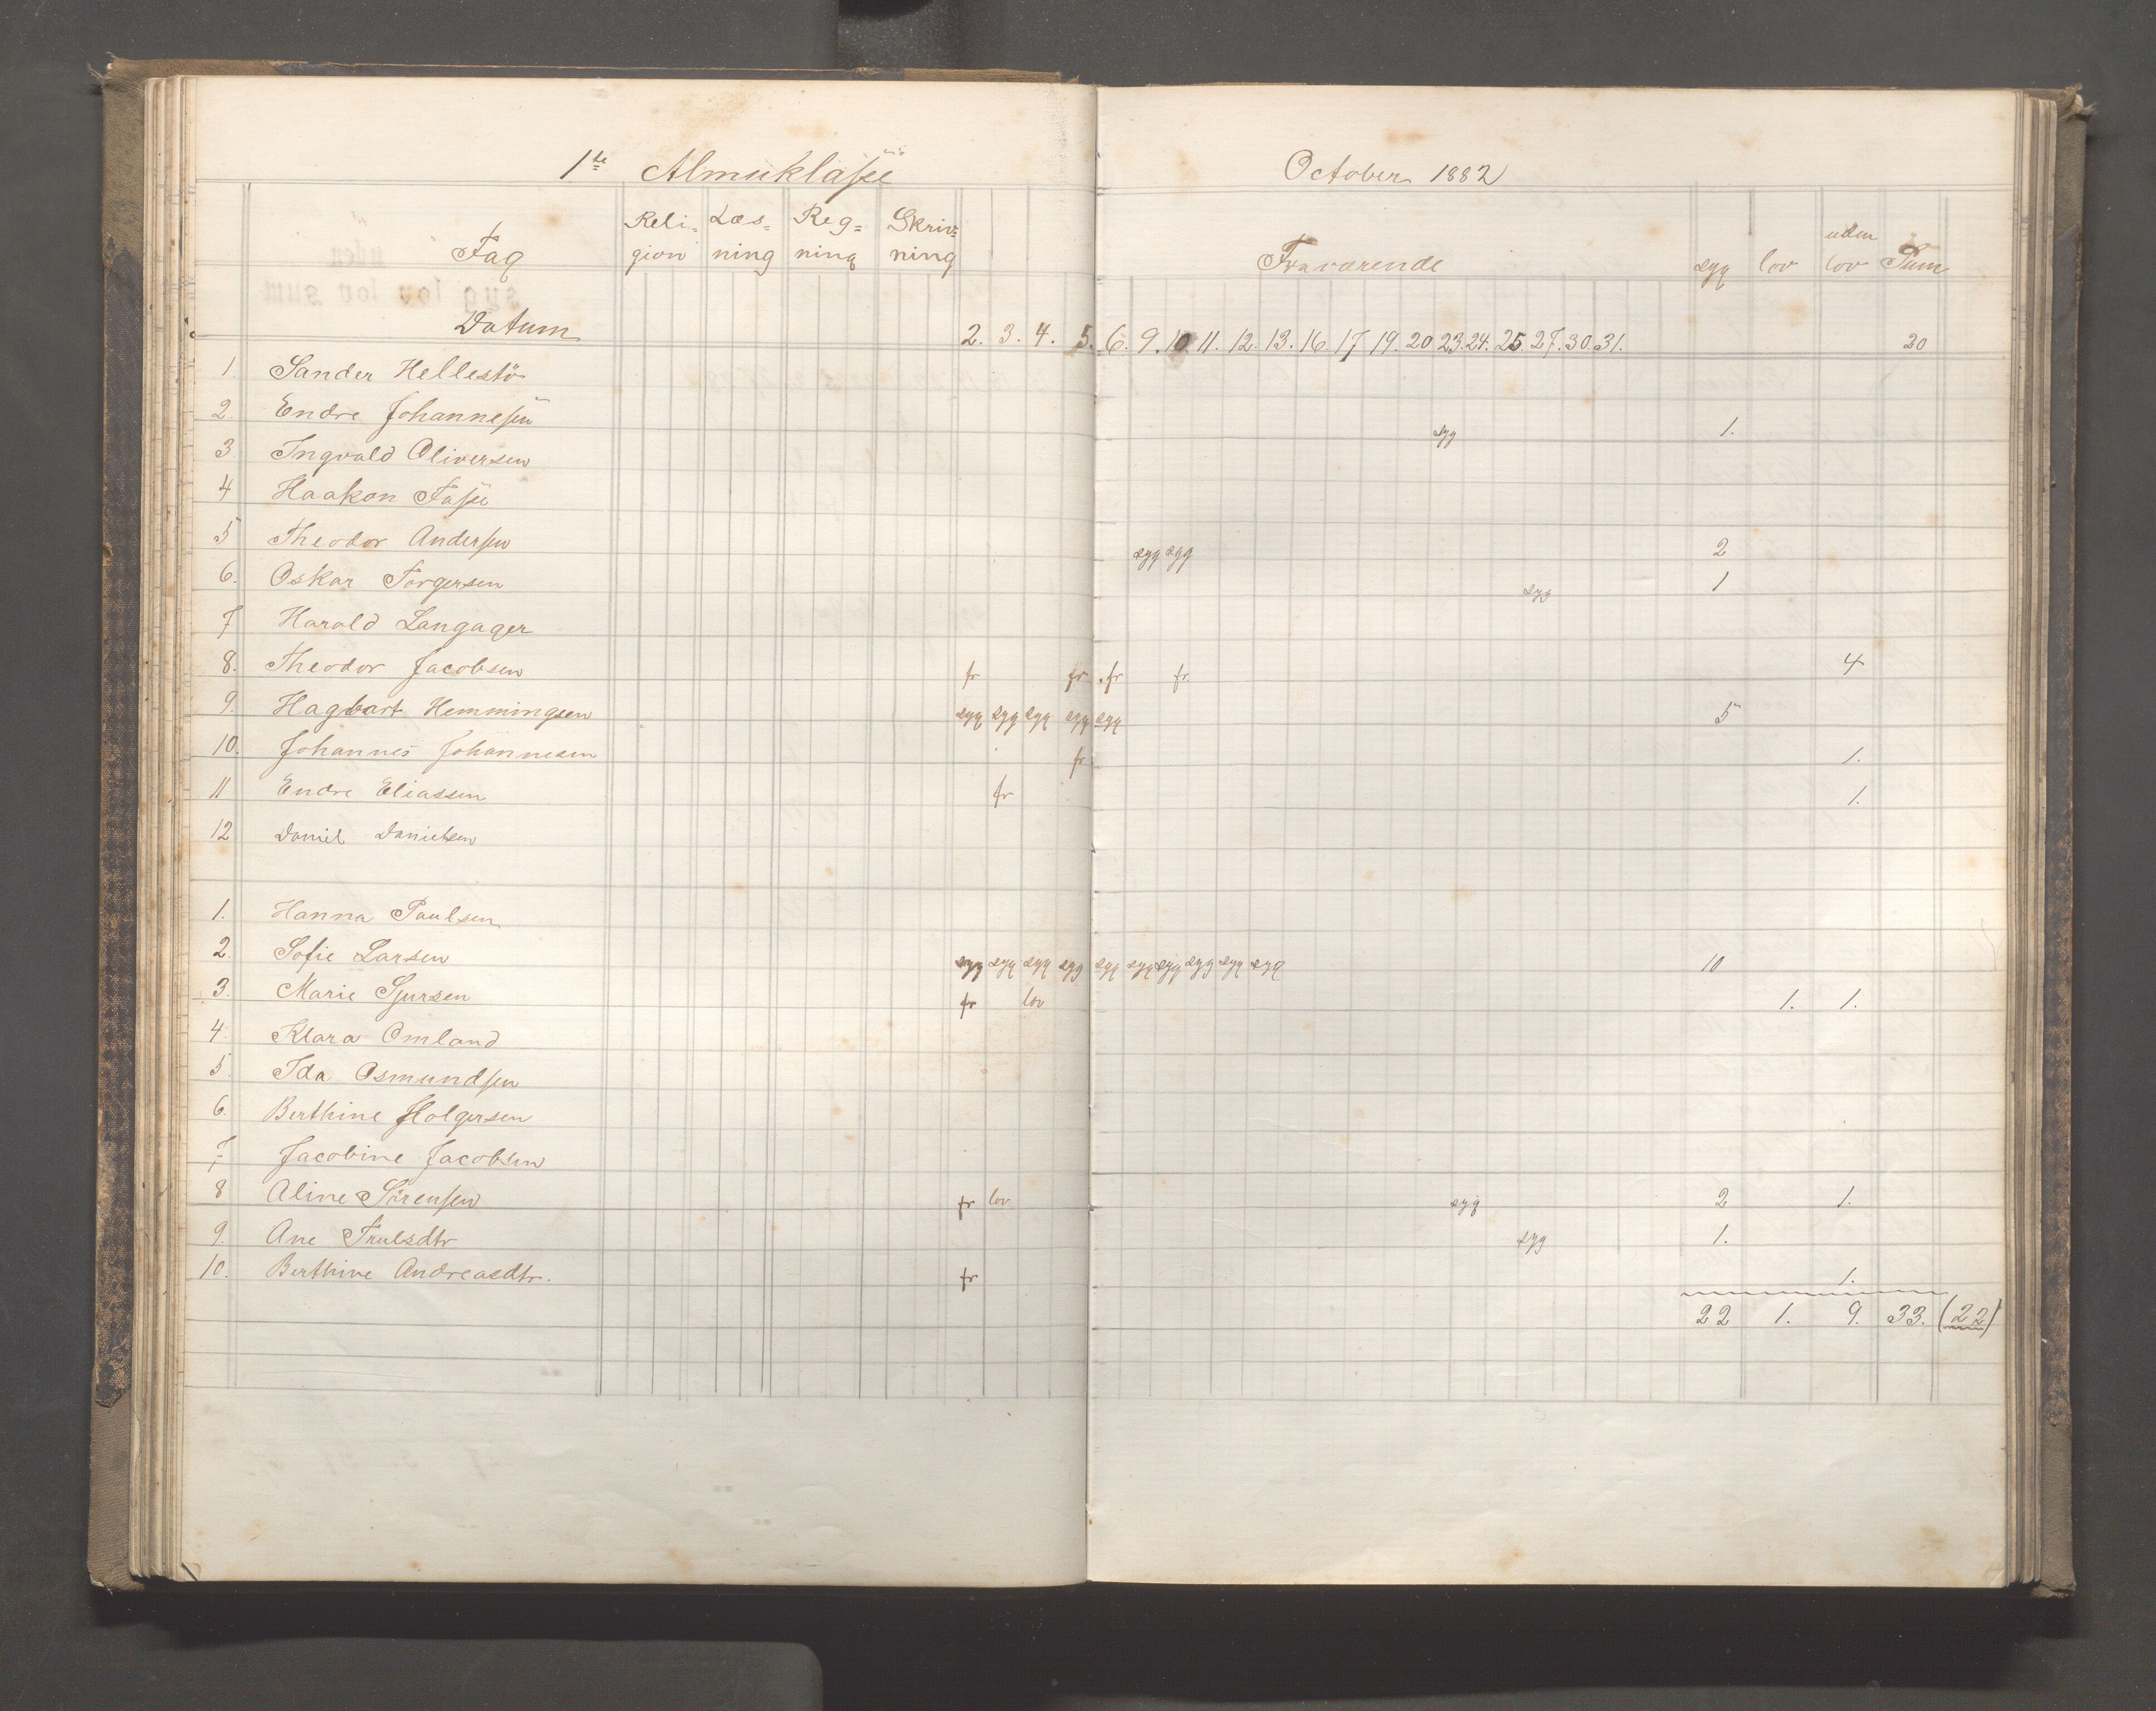 1ste Almuklasse October 1882
Fag Religion Læsning Regning Skrivning Fraværende syg lov uden lov Sum
Datum 2. 3. 4. 5. 6. 9. 10. 11. 12. 13. 16. 17 19. 20 23. 24. 25. 27. 30. 31. 20
1. Sander Hellestö
2. Endre Johannesen syg 1.
3 Ingvald Oliversen
4 Haakon Tasse
5 Theodor Andersen syg syg 2
6. Oskar Torgersen syg 1
7 Harald Langager
8. Theodor Jacobsen fr fr fr fr. 4
9. Hagbart Hemmingsen syg syg syg syg syg 5
10. Johannes Johannesen fr 1.
11 Endre Eliassen fr 1.
12 Daniel Danielsen
1. Hanna Paulsen
2. Sofie Larsen syg syg syg syg syg syg syg syg syg syg 10
3. Marie Sjursen fr lov 1. 1.
4. Klara Omland
5. Ida Osmundsen
6. Berthine Holgersen
7 Jacobine Jacobsen
8 Aline Sörensen fr lov syg 2 1.
9. Ane Trulsdtr syg 1.
10. Berthine Andreasdtr. fr 1.
22 1. 9. 33. (22)